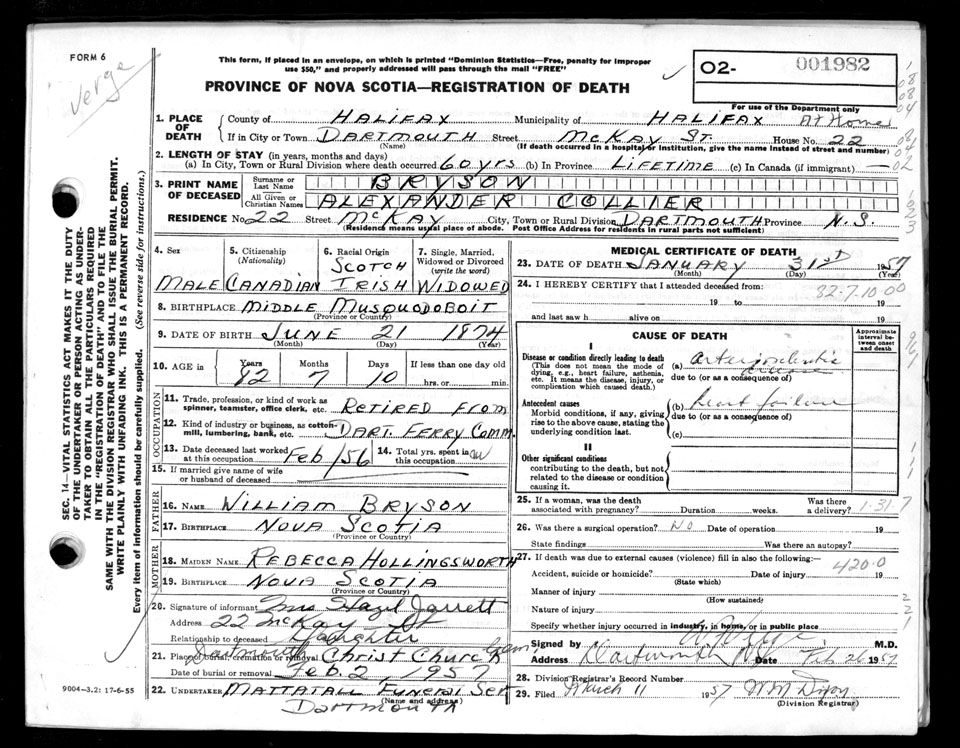 FORM 6
Verge
This form, if placed in an envelope, on which is printed "Dominion Statistics—Free, penalty for improper
use $50," and properly addressed will pass through the mail "FREE"
PROVINCE OF NOVA SCOTIA—REGISTRATION OF DEATH
O2- 001982
For use of the Department only
1. PLACE OF DEATH County of HALIFAX Municipality of HALIFAX At Home
If in City or Town DARTMOUTH Street McKAY ST. House No. 22
(Name) (If death occurred in a hospital or institution, give the name instead of street and number)
2. LENGTH OF STAY (in years, months and days)
(a) In City, Town or Rural Division where death occurred 60 yrs (b) In Province LIFETIME (c) In Canada (if immigrant)
3. PRINT NAME OF DECEASED Surname or Last Name BRYSON
All Given or Christian Names ALEXANDER COLLIER
RESIDENCE No. 22 Street McKAY City, Town or Rural Division DARTMOUTH Province N.S.
(Residence means usual place of abode. Post Office Address for residents in rural parts not sufficient)
4. Sex MALE
5. Citizenship (Nationality) CANADIAN
6. Racial Origin SCOTCH IRISH
7. Single, Married, Widowed or Divorced (write the word) WIDOWED
8. BIRTHPLACE MIDDLE MUSQUODOBOIT
(Province or Country)
9. DATE OF BIRTH JUNE 21 1874
(Month) (Day) (Year)
10. AGE in Years 82 Months 7 Days 10 If less than one day old hrs. or min.
OCCUPATION
11. Trade, profession, or kind of work as spinner, teamster, office clerk, etc. RETIRED FROM
12. Kind of industry or business, as cotton-mill, lumbering, bank, etc. DART. FERRY COMM.
13. Date deceased last worked at this occupation Feb/56 14. Total yrs. spent in this occupation
15. If married give name of wife or husband of deceased
FATHER
16. NAME WILLIAM BRYSON
17. BIRTHPLACE NOVA SCOTIA
(Province or Country)
MOTHER
18. MAIDEN NAME REBECCA HOLLINGSWORTH
19. BIRTHPLACE NOVA SCOTIA
(Province or Country)
20. Signature of informant Mrs Hazel Jarrett
Address 22 McKay St
Relationship to deceased Daughter
21. Place of burial, cremation or removal Dartmouth Christ Church Cem.
Date of burial or removal Feb. 2, 1957
22. UNDERTAKER MATTATALL FUNERAL SER
(Name and address)
DARTMOUTH
MEDICAL CERTIFICATE OF DEATH
23. DATE OF DEATH JANUARY 31ST 1957
(Month) (Day) (Year)
24. I HEREBY CERTIFY that I attended deceased from
82-7-10-00
19 to 19
and last saw h alive on 19
CAUSE OF DEATH
Approximate interval between onset and death
I
Disease or condition directly leading to death
(This does not mean the mode of dying, e.g., heart failure, asthenia, etc. It means the disease, injury, or complication which caused death.)
(a) arteriosclerotic
due to (or as a consequence of)
Antecedent causes
Morbid conditions, if any, giving rise to the above cause, stating the underlying condition last.
(b) heart failure
due to (or as a consequence of)
(c)
II
Other significant conditions
contributing to the death, but not related to the disease or condition causing it.
25. If a woman, was the death associated with pregnancy? Duration weeks. Was there a delivery?
1-31-7
26. Was there a surgical operation? NO Date of operation 19
State findings Was there an autopsy?
27. If death was due to external causes (violence) fill in also the following:—
420.0
Accident, suicide or homicide? Date of injury 19
(State which)
Manner of injury
(How sustained)
Nature of injury
Specify whether injury occurred in industry, in home, or in public place
Signed by M.D.
Address Dartmouth NS Date Feb 26 1957
28. Division Registrar's Record Number
29. Filed March 11 1957
(Division Registrar)
SEC. 14—VITAL STATISTICS ACT MAKES IT THE DUTY
OF THE UNDERTAKER OR PERSON ACTING AS UNDER-
TAKER TO OBTAIN ALL THE PARTICULARS REQUIRED
IN THE "REGISTRATION OF DEATH" AND TO FILE THE
SAME WITH THE DIVISION REGISTRAR WHO SHALL ISSUE THE BURIAL PERMIT.
WRITE PLAINLY WITH UNFADING INK. THIS IS A PERMANENT RECORD.
Every item of information should be carefully supplied. (See reverse side for instructions.)
9004-3.2: 17-6-55